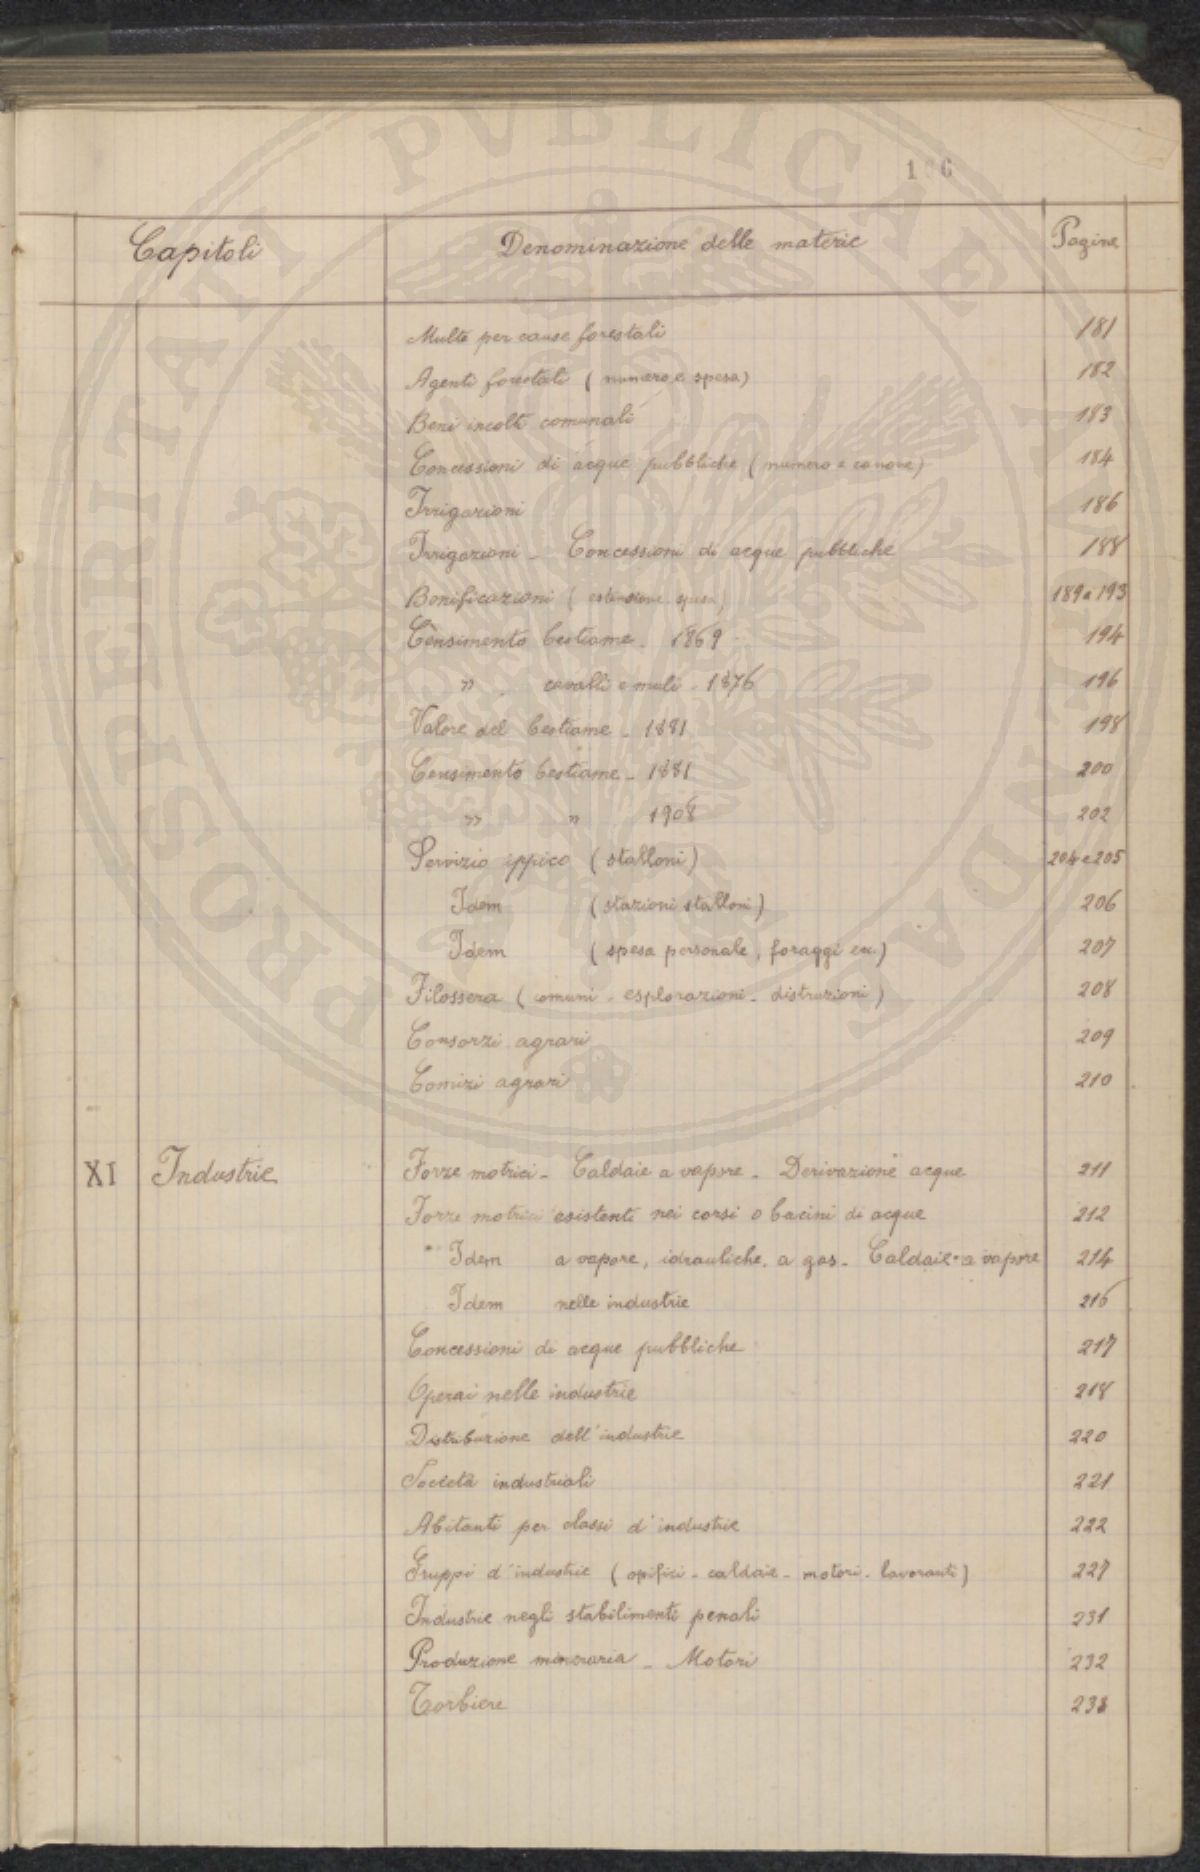 106
Capitoli Denominazione delle materie Pagine
Multe per cause forestali 181
Agenti forestali (numero e spesa) 182
Beni incolti comunali 183
Concessioni di acque pubbliche (numero e canone) 184
Irrigazioni 186
Irrigazioni - Concessioni di acque pubbliche 188
Bonificazioni (estensione spesa) 189 a 193
Censimento bestiame - 1869 194
" cavalli e muli - 1876 196
Valore del bestiame - 1881 198
Censimento bestiame - 1881 200
" " 1908 202
Servizio ippico (stalloni) 204 e 205
Idem (stazioni stalloni) 206
Idem (spesa personale, foraggi ecc.) 207
Filossera (comuni - esplorazioni - distruzioni) 208
Consorzi agrari 209
Comizi agrari 210
XI Industrie Forze motrici - Caldaie a vapore - Derivazione acque 211
Forze motrici esistenti nei corsi o bacini di acque 212
Idem a vapore, idrauliche, a gas - Caldaie a vapore 214
Idem nelle industrie 216
Concessioni di acque pubbliche 217
Operai nelle industrie 218
Distribuzione dell'industrie 220
Società industriali 221
Abitanti per classi d'industrie 222
Gruppi d'industrie (opifici - caldaie - motori - lavoranti) 227
Industrie negli stabilimenti penali 231
Produzione mineraria - Motori 232
Torbiere
PROSPERITATI PVBLICAE AVGENDAE